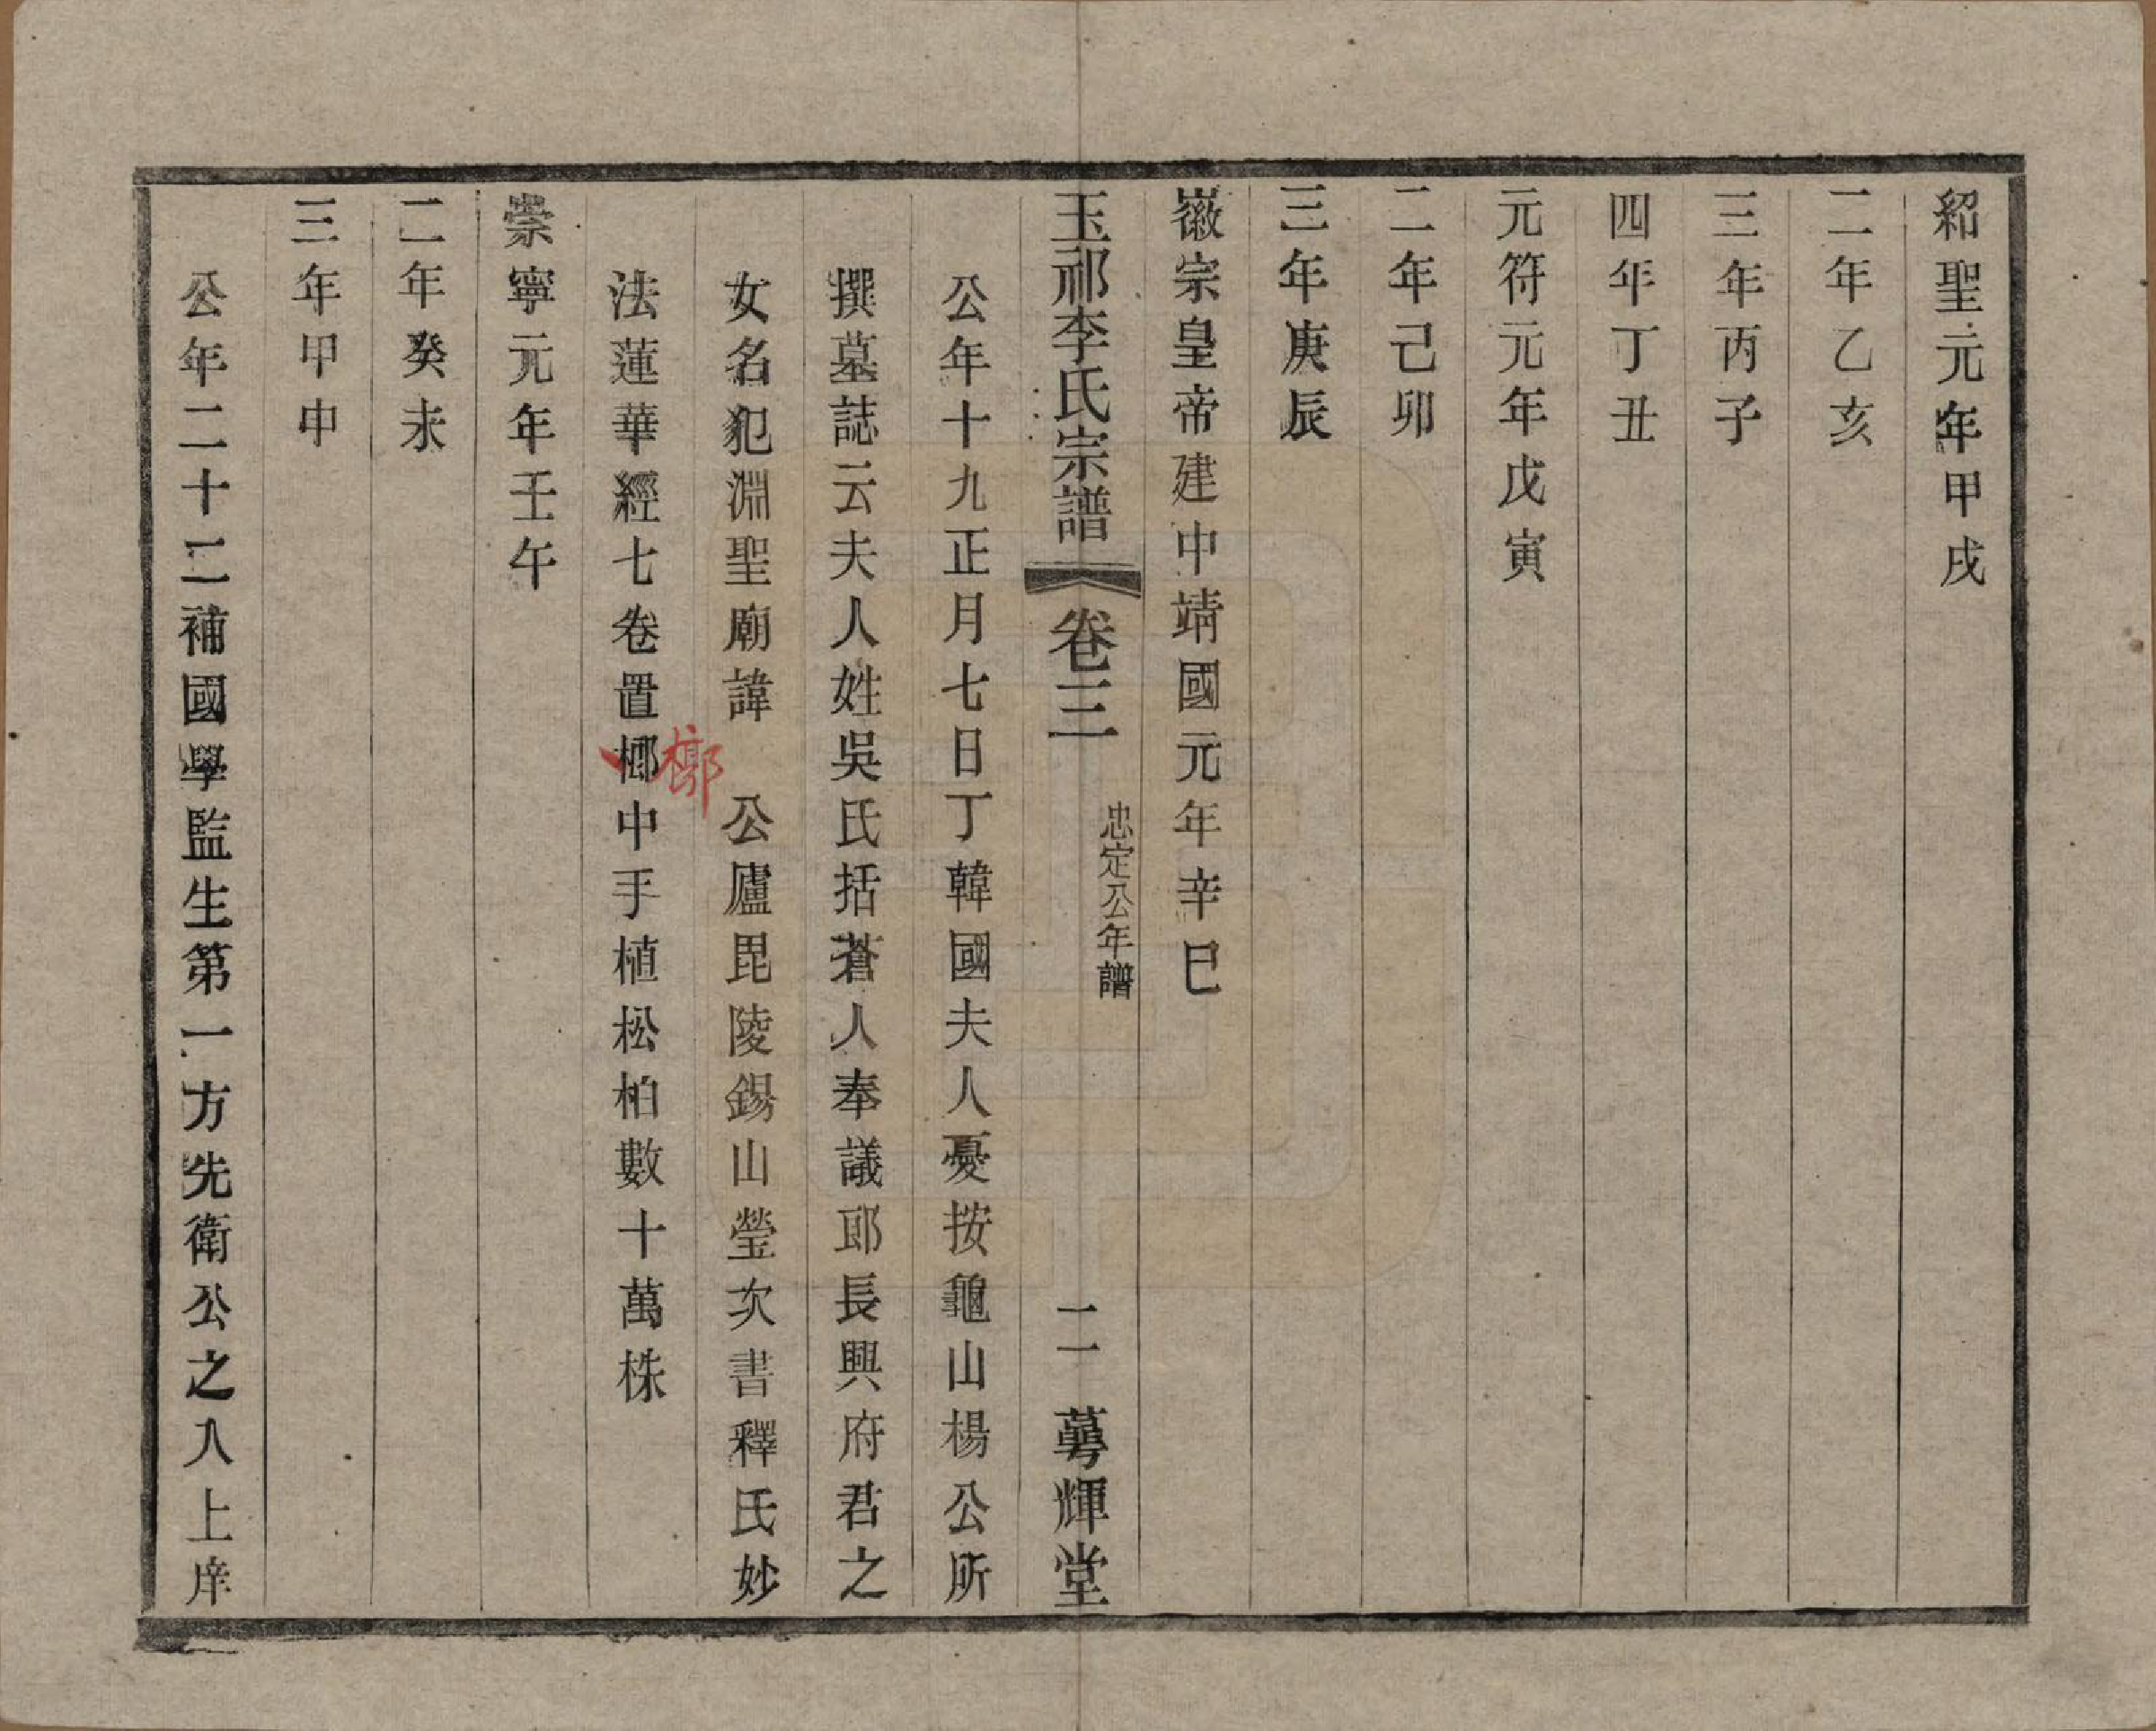 紹聖元年甲戌
二年乙亥
三年丙子
四年丁丑
元符元年戊寅
二年己卯
三年庚辰
徽宗皇帝建中靖國元年辛巳
玉祁李氏宗譜
卷三
忠定公年譜
二
萼輝堂
公年十九正月七日丁韓國夫人憂按龜山楊公所
撰墓誌云夫人姓吳氏括蒼人奉議郎長興府君之
女名犯淵聖廟諱 公廬毘陵錫山塋次書釋氏妙
法蓮華經七卷置槨中手植松柏數十萬株
槨
崇寧元年壬午
二年癸未
三年甲申
公年二十二補國學監生第一方先衛公之入上庠